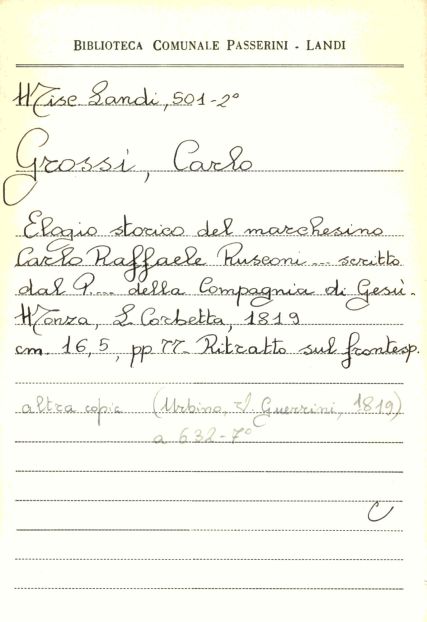 BIBLIOTECA COMUNALE PASSERINI - LANDI
Misc. Landi, 501-2°
Grossi, Carlo
Elogio storico del marchesino
Carlo Raffaele Rusconi ... scritto
dal P.... della Compagnia di Gesù.
Monza, L. Corbetta, 1819
cm. 16,5, pp 77. Ritratto sul frontesp.
altra copia (Urbino, V. Guerrini, 1819)
a 632-7°
C